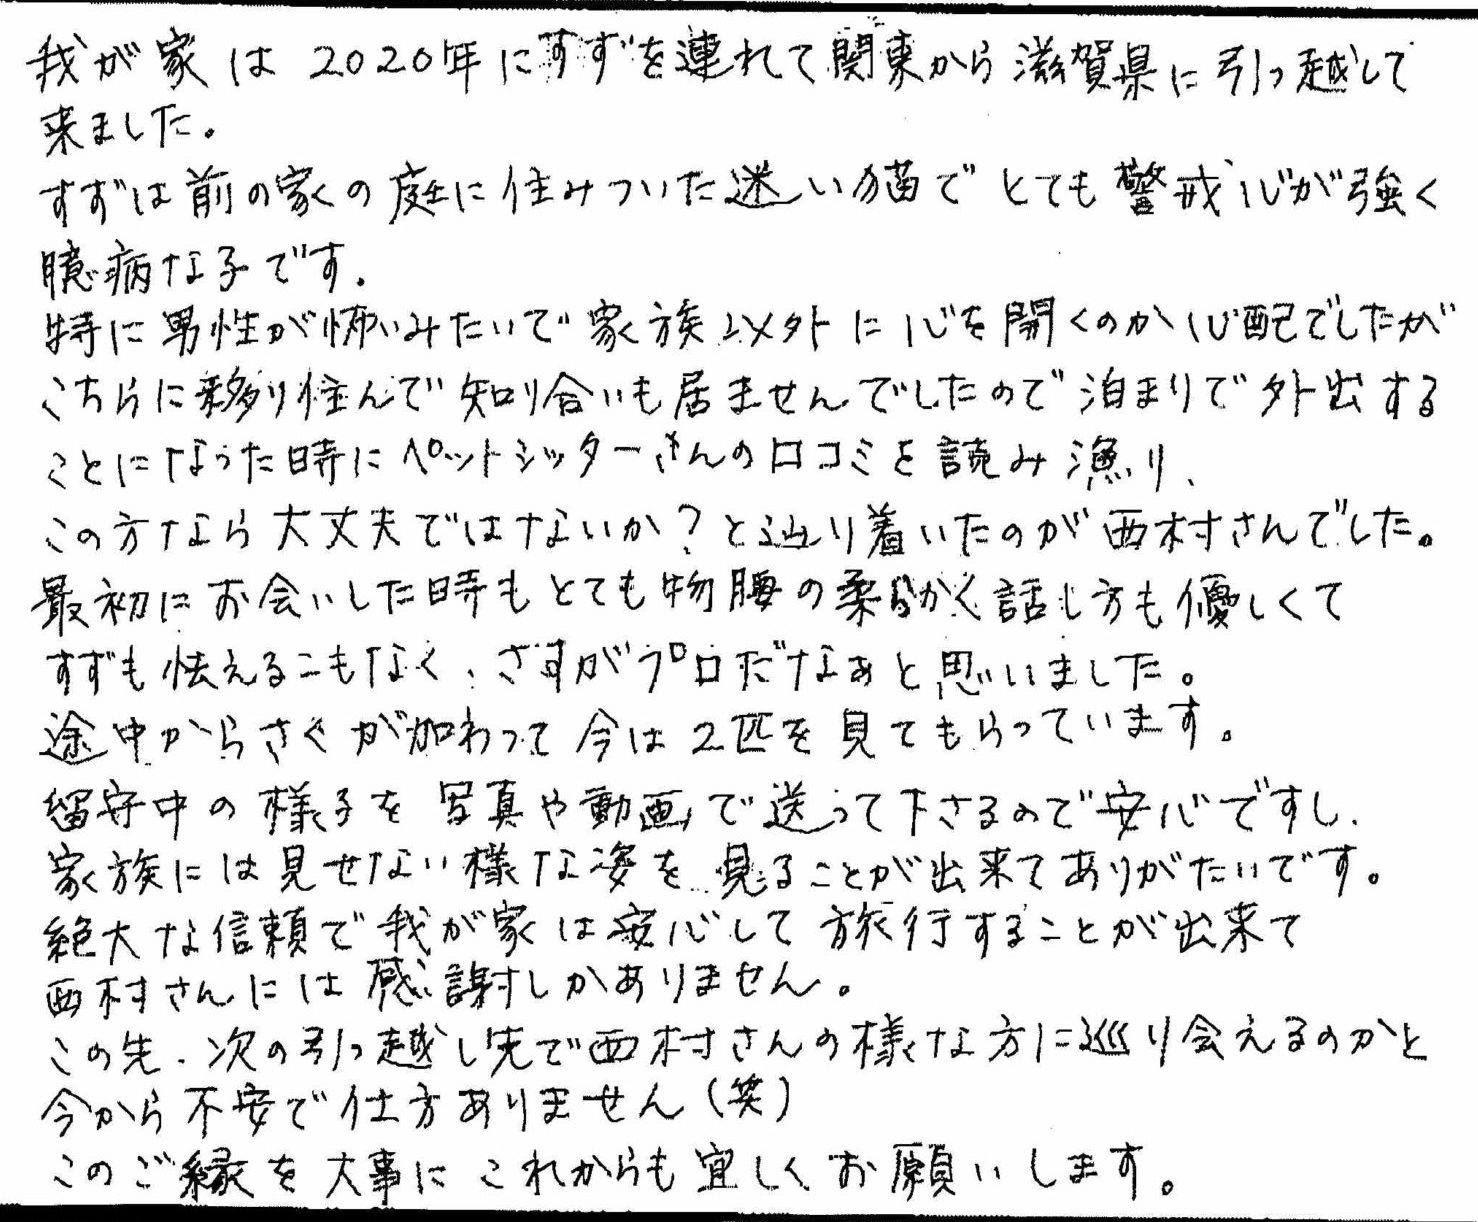 我が家は2020年にすずを連れて関東から滋賀県に引っ越して
来ました。
すずは前の家の庭に住みついた迷い猫でとても警戒心が強く
臆病な子です。
特に男性が怖いみたいで家族以外に心を開くのか心配でしたが
こちらに移り住んで知り合いも居ませんでしたので泊まりで外出する
ことになった時にペットシッターさんの口コミを読み漁り、
この方なら大丈夫ではないか？と辿り着いたのが西村さんでした。
最初にお会いした時もとても物腰の柔らかく話し方も優しくて
すずも怯えるこもなく、さすがプロだなぁと思いました。
途中からさくが加わって今は2匹を見てもらっています。
留守中の様子を写真や動画で送って下さるので安心ですし、
家族には見せない様な姿を見ることが出来てありがたいです。
絶大な信頼で我が家は安心して旅行することが出来て
西村さんには感謝しかありません。
この先、次の引っ越し先で西村さんの様な方に巡り会えるのかと
今から不安で仕方ありません（笑）
このご縁を大事にこれからも宜しくお願いします。